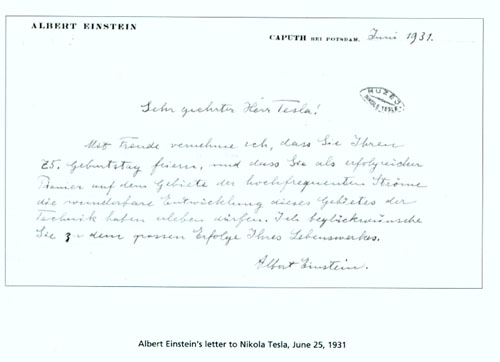 ALBERT EINSTEIN
CAPUTH BEI POTSDAM, Juni 1931.
MUZEJ
NIKOLE TESLE
Sehr geehrter Herr Tesla!
Mit Freude vernehme ich, dass Sie Ihren
75. Geburtstag feiern, und dass Sie als erfolgreicher
Pionier auf dem Gebiete der hochfrequenten Ströme
die wunderbare Entwicklung dieses Gebietes der
Technik haben erleben dürfen. Ich beglückwünsche
Sie zu dem grossen Erfolge Ihres Lebenswerkes.
Albert Einstein.
Albert Einstein's letter to Nikola Tesla, June 25, 1931